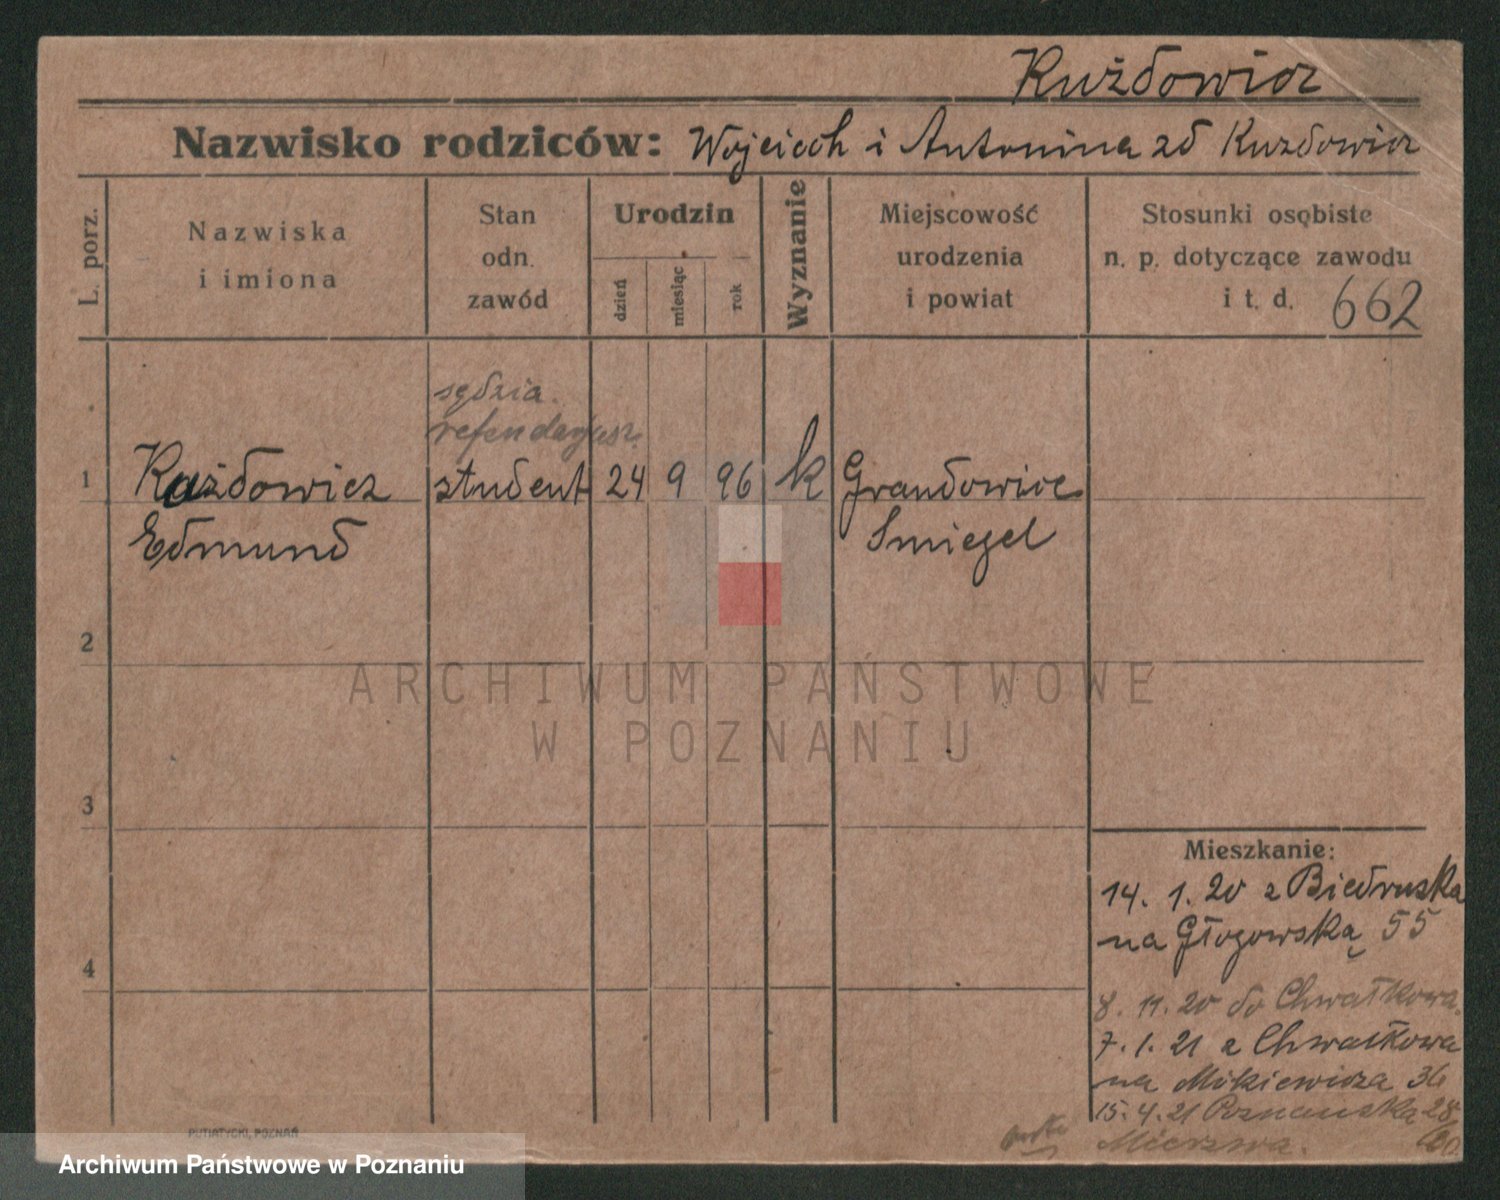 Kużdowicz
Nazwisko rodziców: Wojciech i Antonina zd Kuzdowicz
L. porz.
Nazwiska
i imiona
Stan
odn.
zawód
Urodzin
dzień
miesiąc
rok
Wyznanie
Miejscowość
urodzenia
i powiat
Stosunki osobiste
n. p. dotyczące zawodu
i t. d. 662
sędzia.
referendarjusz
1 Kużdowicz student 24 9 96 k Grandowice
Edmund Smiegel
2
ARCHIWUM PAŃSTWOWE
W POZNANIU
3
Mieszkanie:
14. 1. 20 z Biedruska
na Głogowską 55
4
8. 11. 20 do Chwałkowa.
7. 1. 21 z Chwałkowa
na Mickiewicza 36
15. 4. 21 Poznańska 28
Mierzwa.
PUTIATYCKI, POZNAŃ
Archiwum Państwowe w Poznaniu